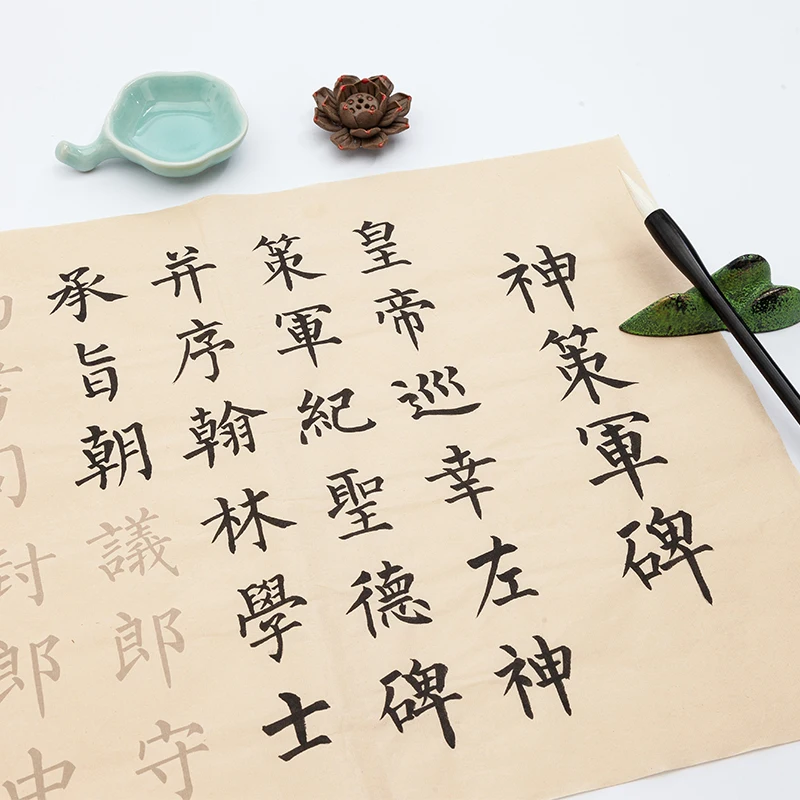 神策軍碑
皇帝巡幸左神
策軍紀聖德碑
并序翰林學士
承旨朝議郎守